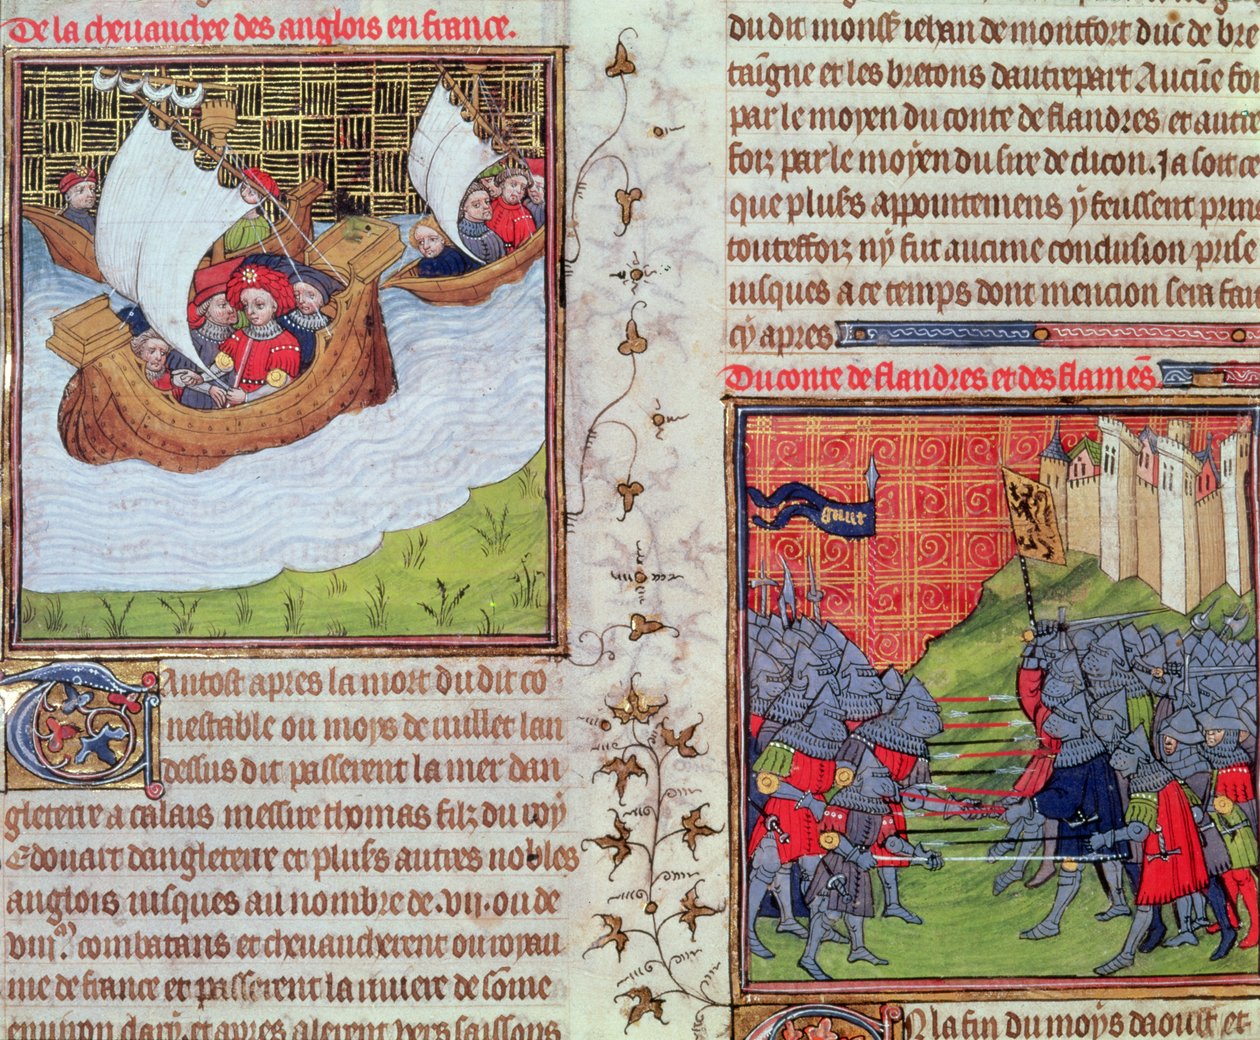 De la chevauchee des anglois en france.
Tantost apres la mort du dit co
nestable ou moys de iuillet lan
dessus dit passerent la mer dan
gleterre a calais messire thomas filz du roy
Edouart dangleterre et plusrs autres nobles
anglois iusques au nombre de .vii. ou de
viii. m combatans et chevaucherent ou royau
me de france et passerent la riviere de some
environ clary. et apres alerent vers soissons
du dit monsr iehan de montfort duc de bre
taigne et les bretons dautre part Aucune foiz
par le moyen du conte de flandres et autre
foiz par le moyen du sire de clicon. Ja soit ce
que plusrs appointemens y feussent prins
toutesfoiz ny fut aucune conclusion prise
iusques a ce temps dont mencion sera faite
cy apres
Du conte de flandres et des flamens
gant
En la fin du moys daoust et